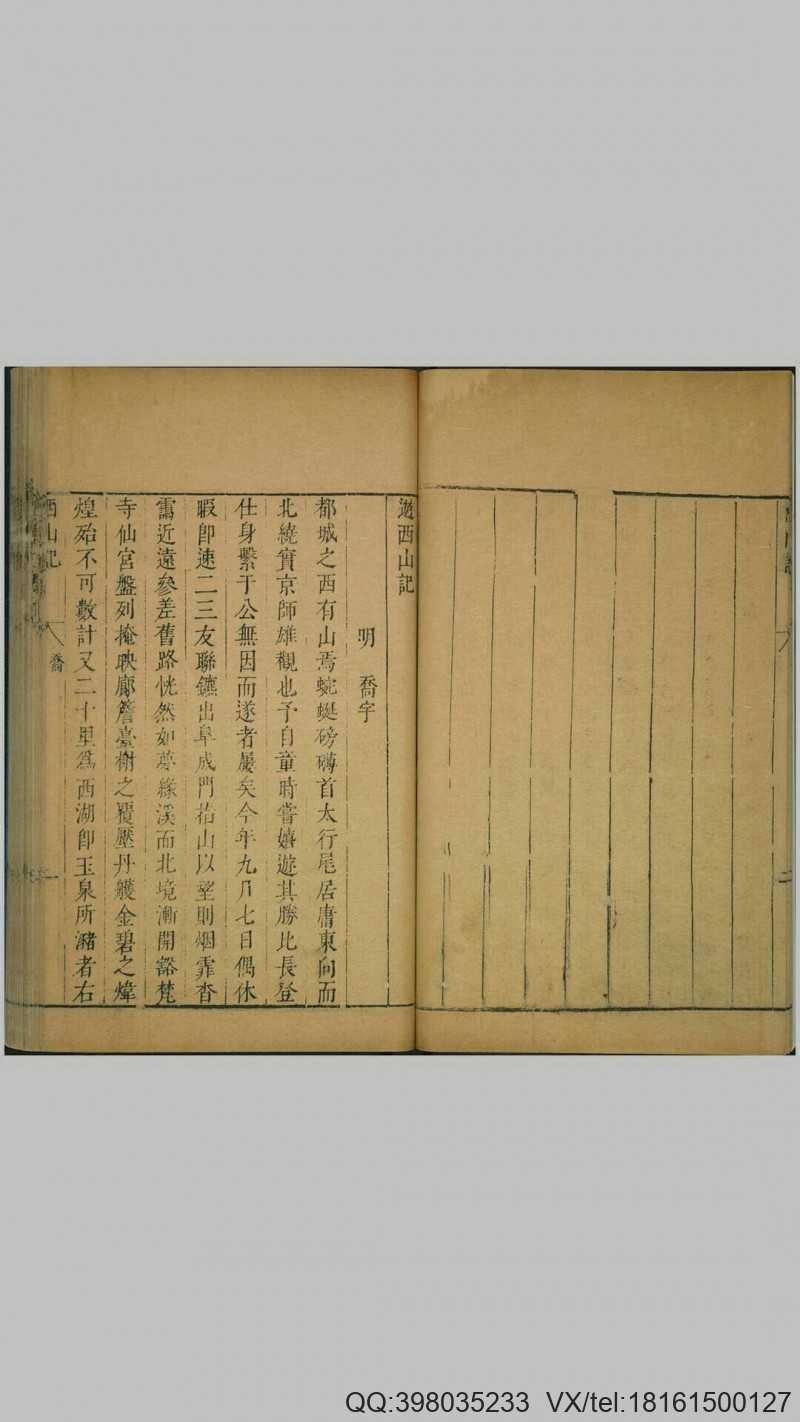 遊西山記
明　喬宇
都城之西有山焉蜿蜒磅礴首太行尾居庸東向而
北繞實京師雄觀也予自童時嘗嬉遊其勝比長登
仕身繫于公無因而遂者屢矣今年九月七日偶休
暇卽速二三友聯鑣出阜成門指山以望則烟霏杳
靄近遠參差舊路恍然如夢緣溪而北境漸開豁梵
寺仙宮盤列掩映廊簷臺榭之覆壓丹艧金碧之煒
煌殆不可數計又二十里爲西湖卽玉泉所瀦者右
西山記
喬
一
二
QQ:398035233 VX/tel:18161500127